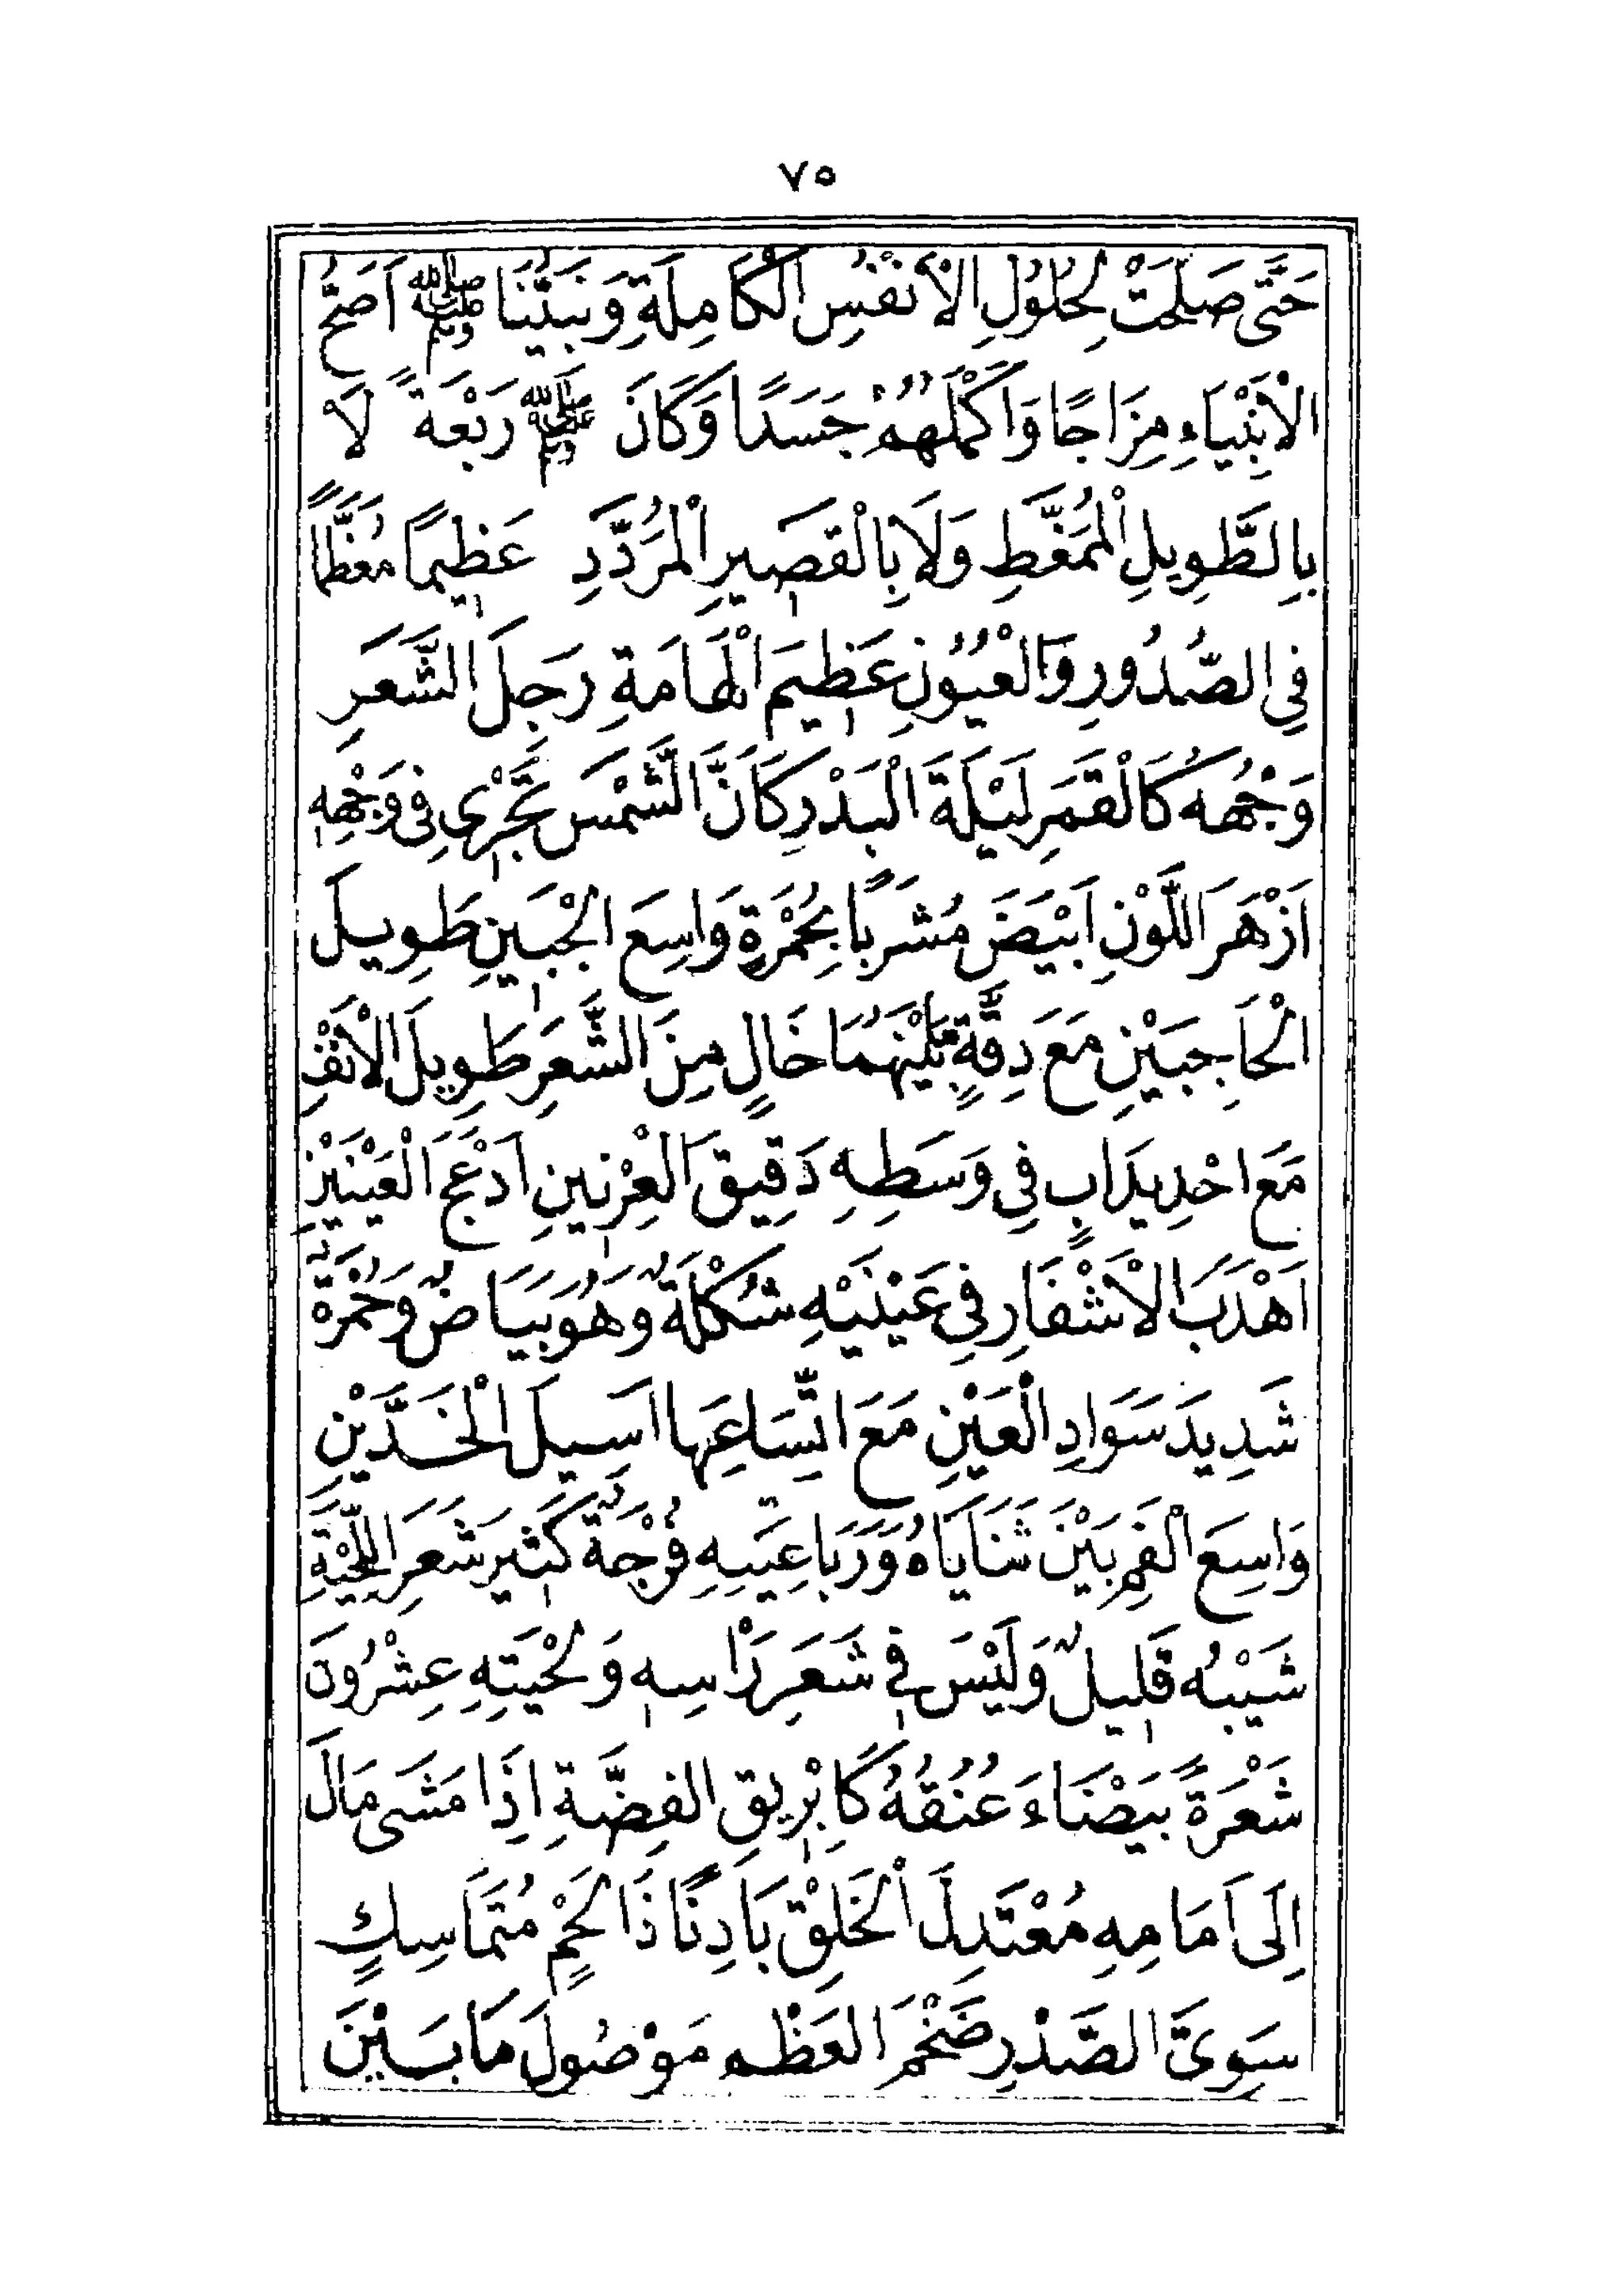 ٧٥
حَتّٰى صَلَحَتْ لِحُلُوْلِ الْاَنْفُسِ الْكَامِلَةِ وَنَبِيُّنَا ﷺ اَصَحُّ
الْاَنْبِيَاءِ مِزَاجًا وَاَكْمَلُهُمْ جَسَدًا وَكَانَ ﷺ رَبْعَةً لَا
بِالطَّوِيلِ الْمُمَغَّطِ وَلَا بِالْقَصِيرِ الْمُرَدَّدِ عَظِيمًا مُعَظَّمًا
فِي الصُّدُورِ وَالْعُيُونِ عَظِيمَ الْهَامَةِ رَجِلَ الشَّعَرِ
وَجْهُهُ كَالْقَمَرِ لَيْلَةَ الْبَدْرِ كَاَنَّ الشَّمْسَ تَجْرِي فِي وَجْهِهِ
اَزْهَرَ اللَّوْنِ اَبْيَضَ مُشْرَبًا بِحُمْرَةٍ وَاسِعَ الْجَبِينِ طَوِيلَ
الْحَاجِبَيْنِ مَعَ دِقَّةٍ بَيْنَهُمَا خَالٍ مِنَ الشَّعَرِ طَوِيلَ الْاَنْفِ
مَعَ احْدِيدَابٍ فِي وَسَطِهِ دَقِيقَ الْعِرْنِينِ اَدْعَجَ الْعَيْنَيْنِ
اَهْدَبَ الْاَشْفَارِ فِي عَيْنَيْهِ شُكْلَةٌ وَهُوَ بَيَاضٌ وَحُمْرَةٌ
شَدِيدَ سَوَادِ الْعَيْنِ مَعَ اتِّسَاعِهَا اَسِيلَ الْخَدَّيْنِ
وَاسِعَ الْفَمِ بَيْنَ ثَنَايَاهُ وَرَبَاعِيَيْهِ فُرْجَةٌ كَثِيرَ شَعَرِ اللِّحْيَةِ
شَيْبُهُ قَلِيلٌ وَلَيْسَ فِي شَعَرِ رَاْسِهِ وَلِحْيَتِهِ عِشْرُونَ
شَعْرَةً بَيْضَاءَ عُنُقُهُ كَاِبْرِيقِ الْفِضَّةِ اِذَا مَشَى مَالَ
اِلَى اَمَامِهِ مُعْتَدِلَ الْخَلْقِ بَادِنًا ذَا لَحْمٍ مُتَمَاسِكٍ
سَوِيَّ الصَّدْرِ ضَخْمَ الْعَظْمِ مَوْصُولَ مَا بَيْنَ